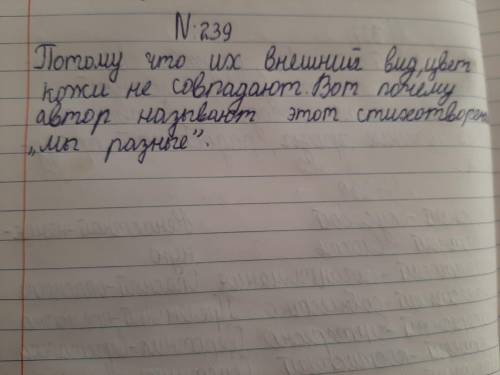 N·239
Потому что их внешний вид, цвет
кожи не совпадают. Вот почему
автор называют этот стихотворен
„мы разные".